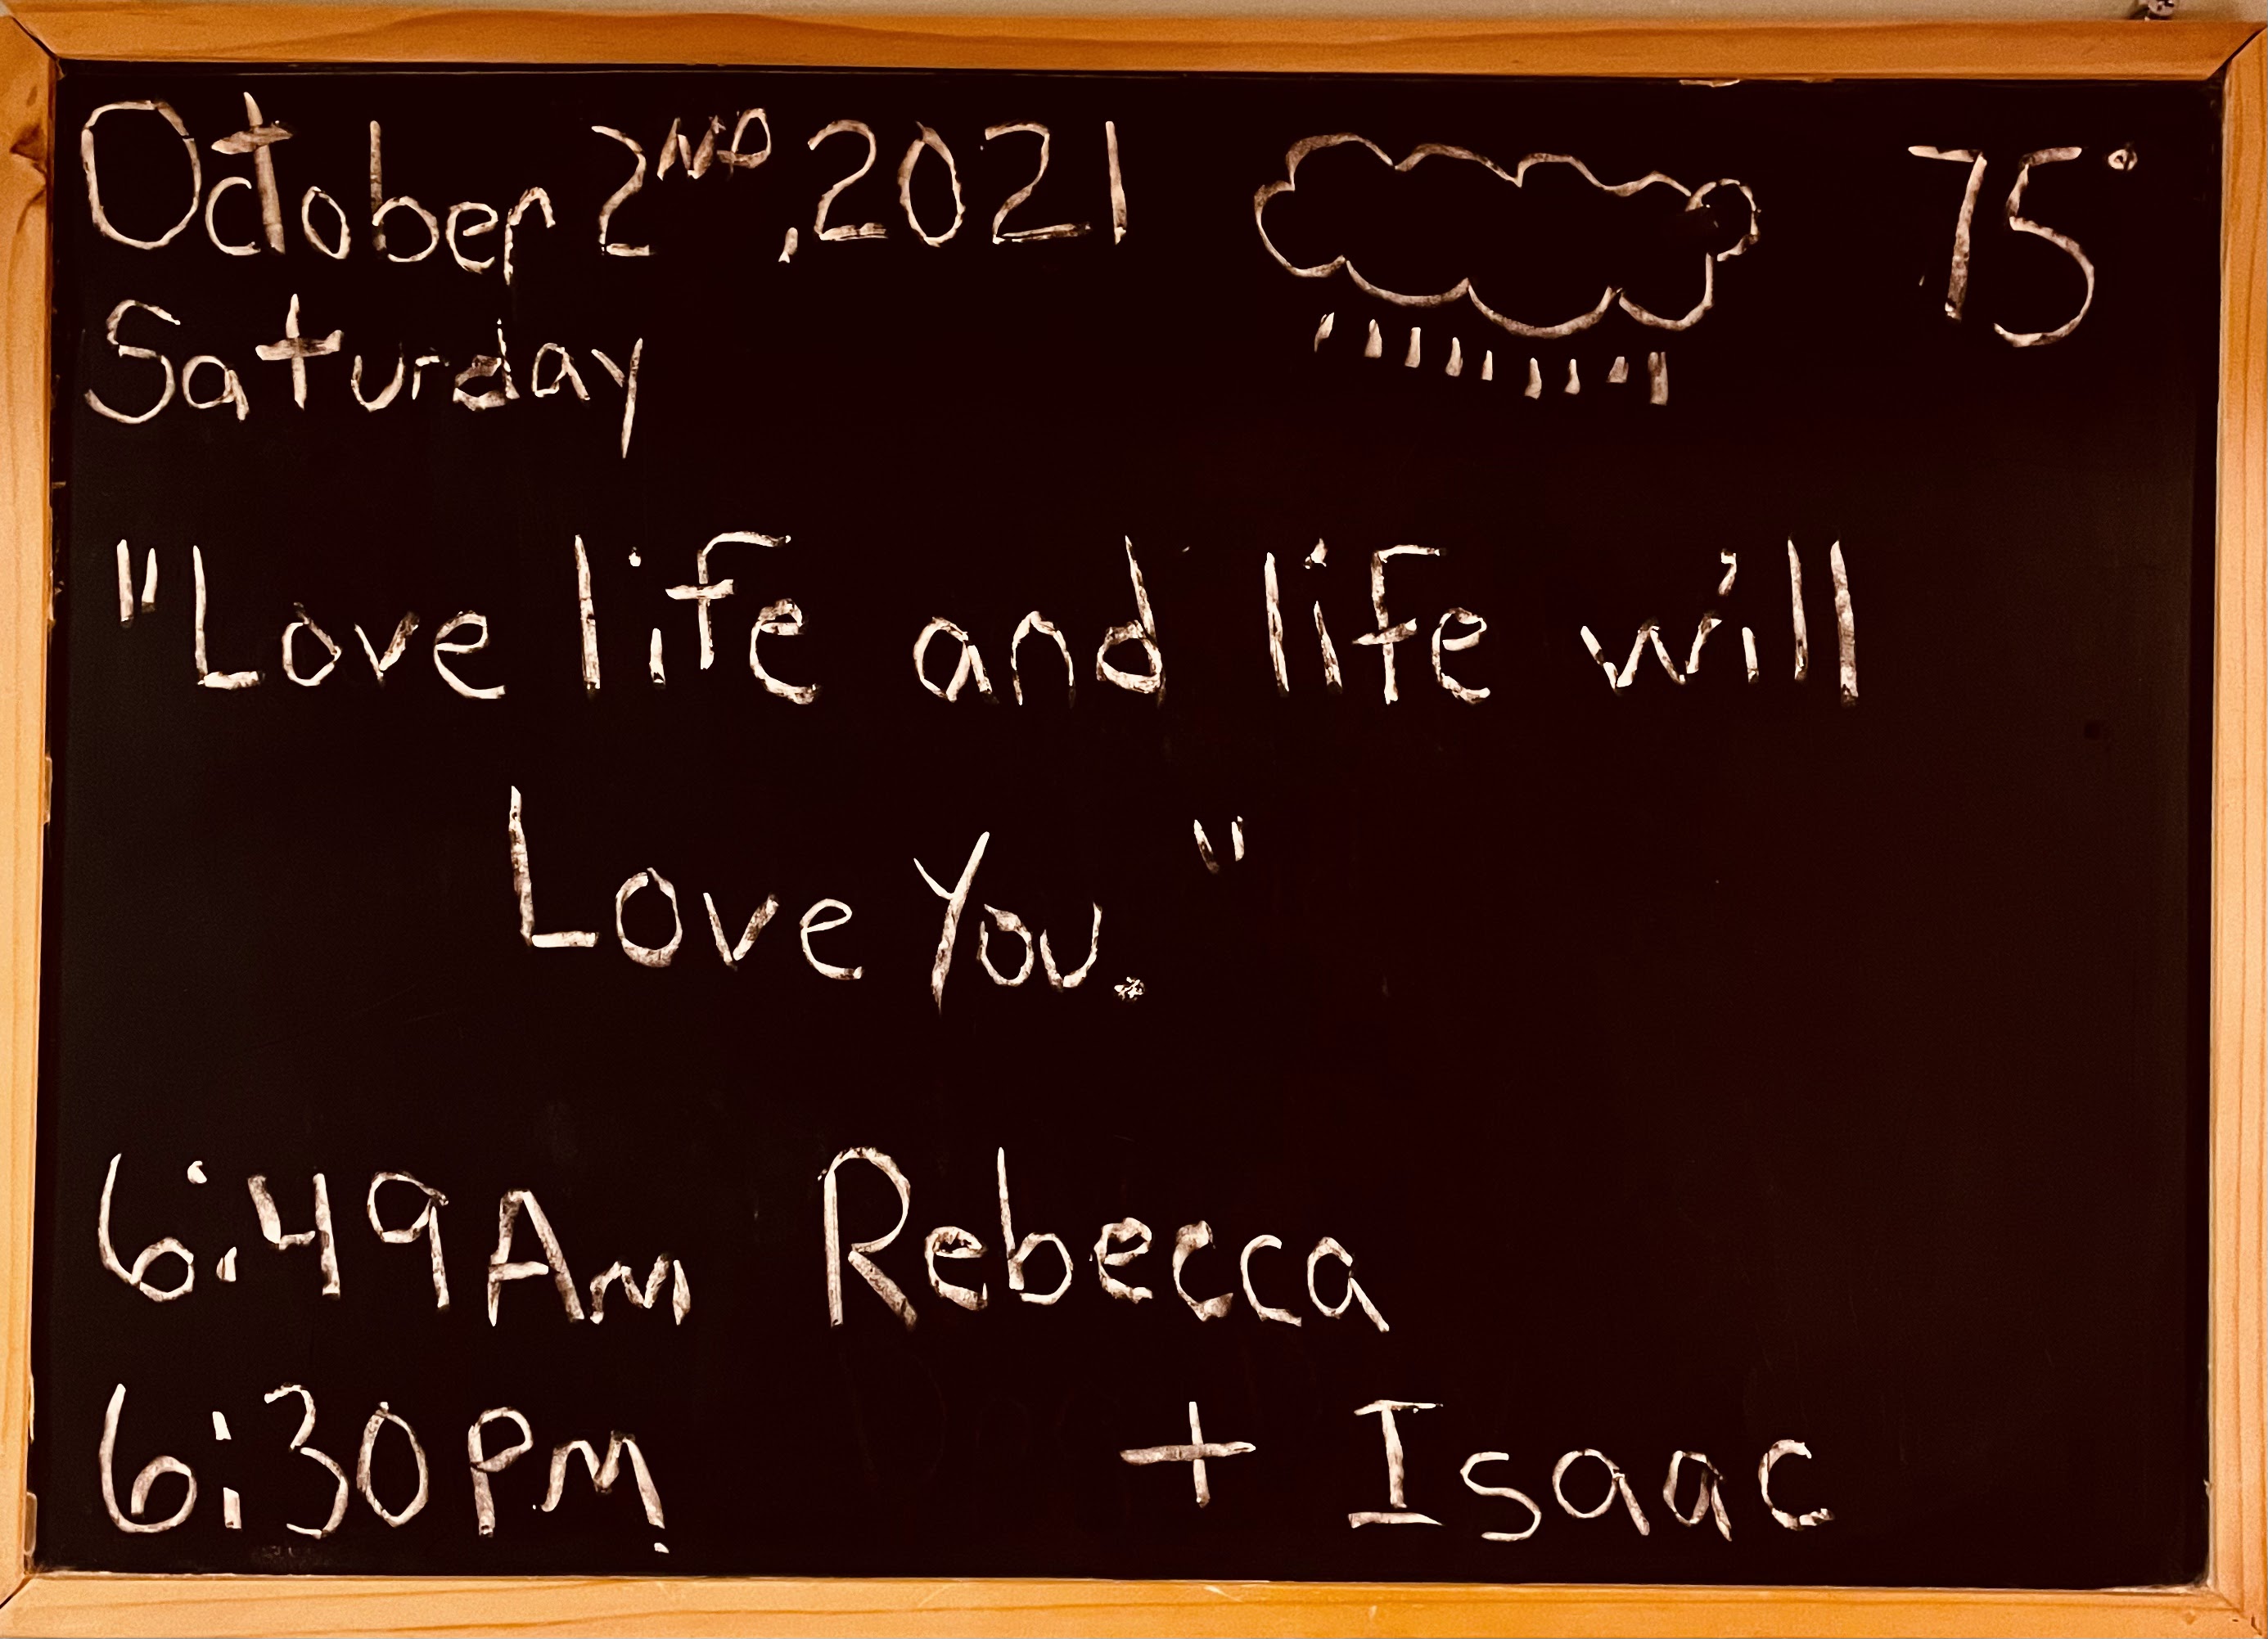 October 2ND, 2021 75°
Saturday
"Love life and life will
Love You."
6:49 Am Rebecca
6:30 PM + Isaac